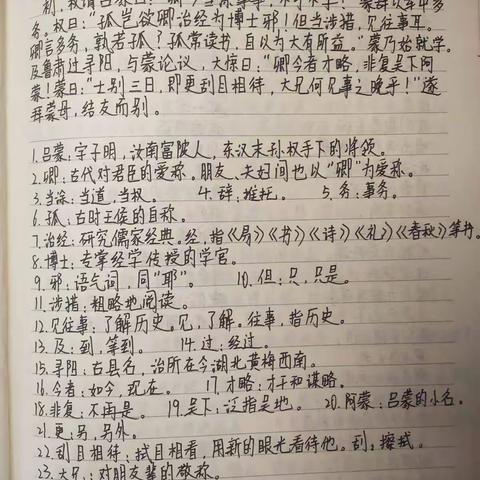 初，权谓吕蒙曰："卿今当涂掌事，不可不学！"蒙辞以军中多
务。权曰："孤岂欲卿治经为博士邪！但当涉猎，见往事耳。
卿言多务，孰若孤？孤常读书，自以为大有所益。"蒙乃始就学。
及鲁肃过寻阳，与蒙论议，大惊曰："卿今者才略，非复吴下阿
蒙！"蒙曰："士别三日，即更刮目相待，大兄何见事之晚乎！"遂
拜蒙母，结友而别。
1.吕蒙：字子明，汝南富陂人，东汉末孙权手下的将领。
2.卿：古代对君臣的爱称。朋友、夫妇间也以"卿"为爱称。
3.当涂：当道，当权。 4.辞：推托。 5.务：事务。
6.孤：古时王侯的自称。
7.治经：研究儒家经典。经，指《易》《书》《诗》《礼》《春秋》等书。
8.博士：专掌经学传授的学官。
9.邪：语气词，同"耶"。 10.但：只，只是。
11.涉猎：粗略地阅读。
12.见往事：了解历史。见，了解。往事，指历史。
13.及：到，等到。 14.过：经过。
15.寻阳：古县名，治所在今湖北黄梅西南。
16.今者：如今，现在。 17.才略：才干和谋略。
18.非复：不再是。 19.吴下：泛指吴地。 20.阿蒙：吕蒙的小名。
21.更：另，另外。
22.刮目相待：拭目相看，用新的眼光看待他。刮：擦拭。
23.大兄：对朋友辈的敬称。